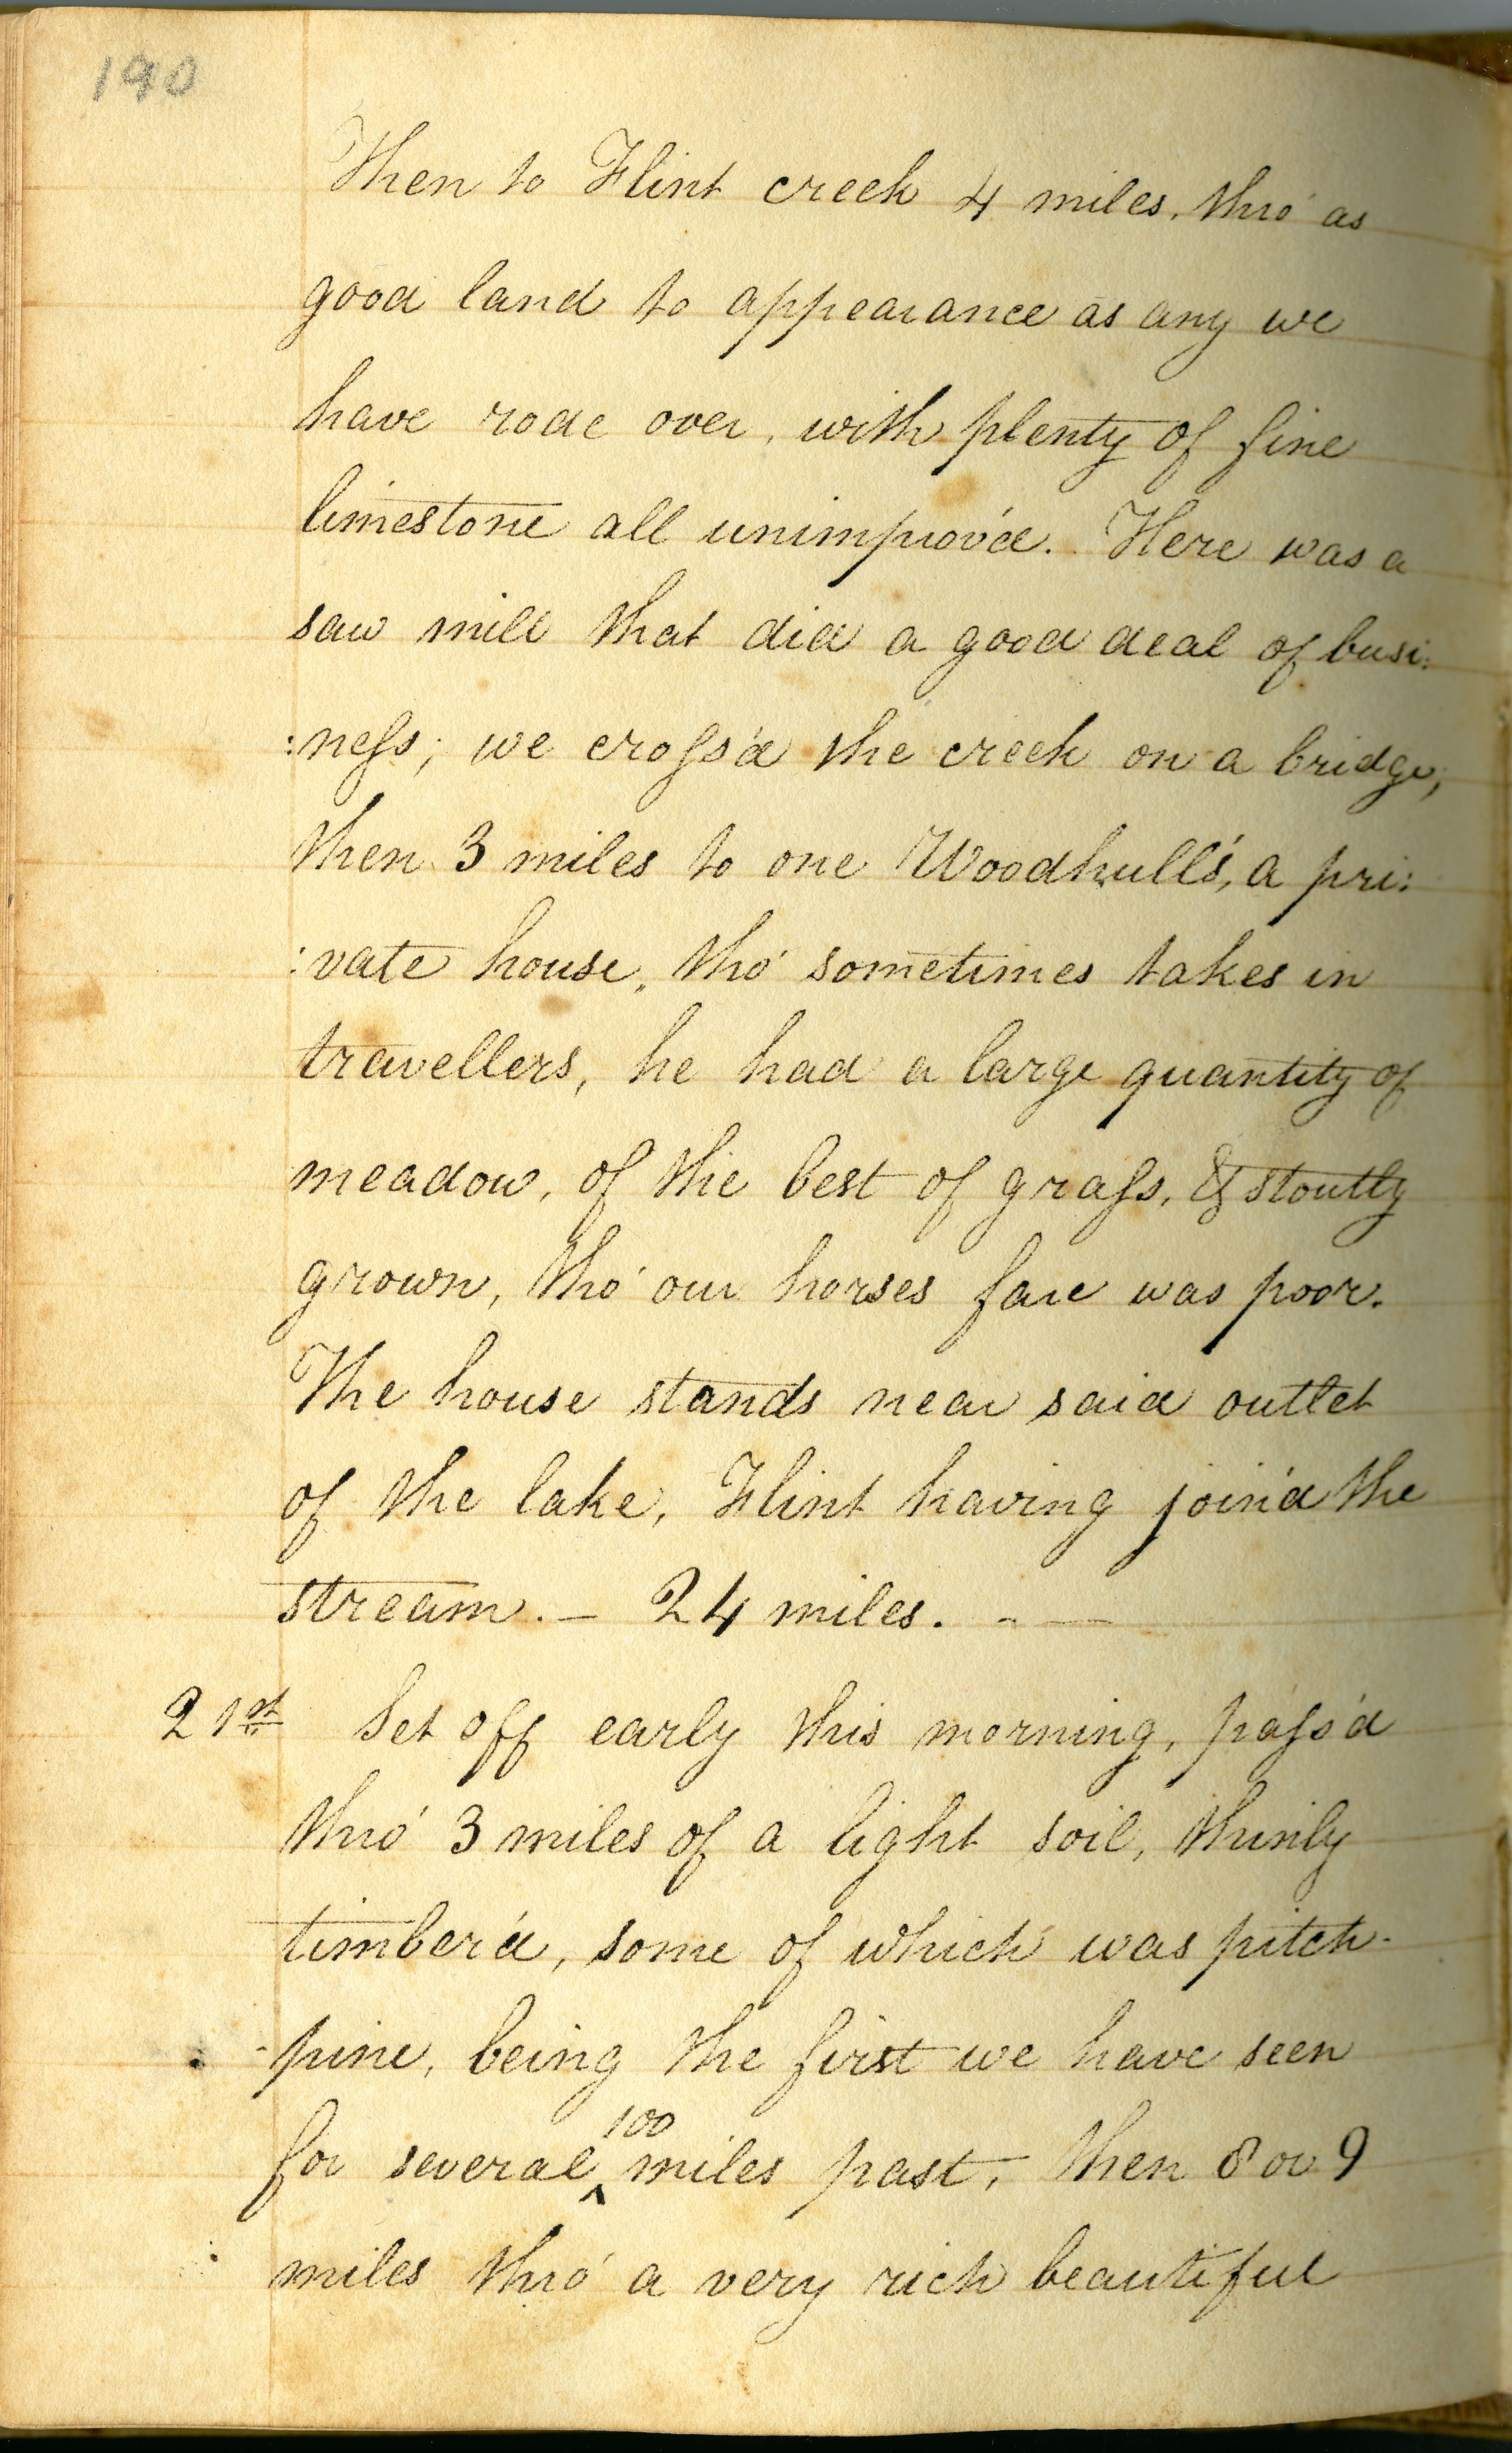 190
Then to Flint creek 4 miles, thro' as
good land to appearance as any we
have rode over, with plenty of fine
limestone all unimprov'd. Here was a
saw mill that did a good deal of busi:
:ness; we cross'd the creek on a bridge,
then 3 miles to one Woodhull's, a pri:
:vate house, tho' sometimes takes in
travellers, he had a large quantity of
meadow, of the best of grass, & stoutly
grown, tho' our horses fare was poor.
The house stands near said outlet
of the lake, Flint having join'd the
stream. – 24 miles. - —
21st Set off early this morning, pass'd
thro' 3 miles of a light soil, thinly
timber'd, some of which was pitch-
-pine, being the first we have seen
for several ^100 miles past, then 8 or 9
miles thro' a very rich beautiful